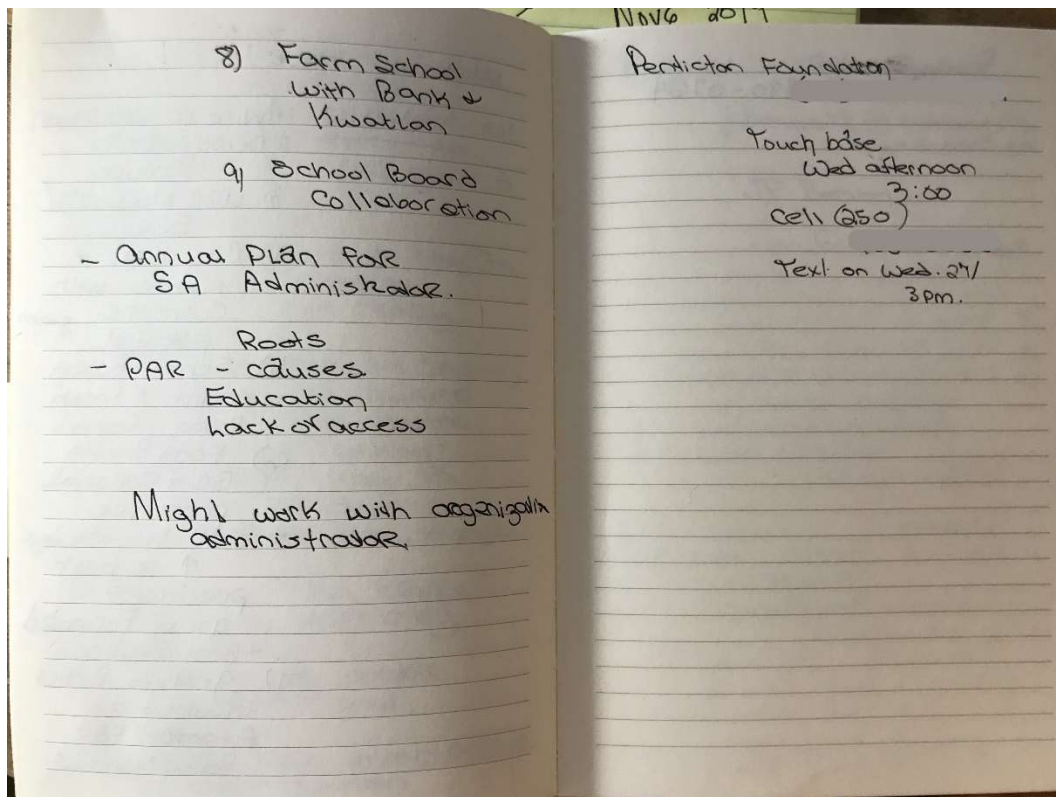 Nov 6 2017
8) Farm School
with Bank &
Kwatlan
9) School Board
Collaboration
- Annual Plan for
SA Administrator.
Roots
- PAR - causes
Education
Lack of access
Might work with organization
administrator
Penticton Foundation
Touch base
Wed afternoon
3:00
Cell (250)
Text on Wed. 27/
3pm.